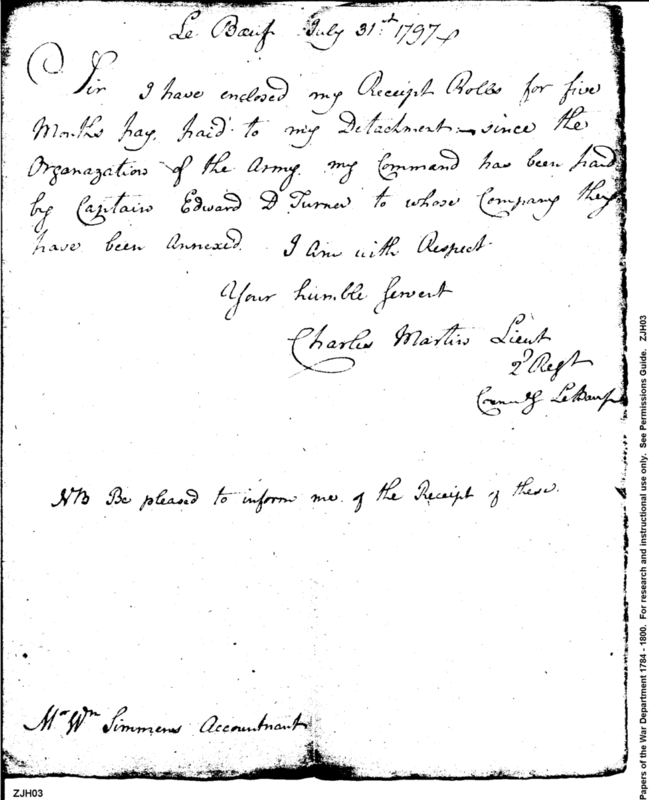 Le Bœuf July 31st 1797
Sir I have enclosed my Receipt Rolls for five
Months pay, paid to my Detachment – since the
Organazation of the Army. my Command has been paid
by Captain Edward D Turner to whose Company they
have been Annexed. I Am with Respect
Your humble Servent
Charles Martin Lieut
2d Regt
Commdg LeBœuf
NB Be pleased to inform me of the Receipt of these.
Mr Wm Simmons Accountnant
ZJH03
Papers of the War Department 1784 - 1800. For research and instructional use only. See Permissions Guide. ZJH03